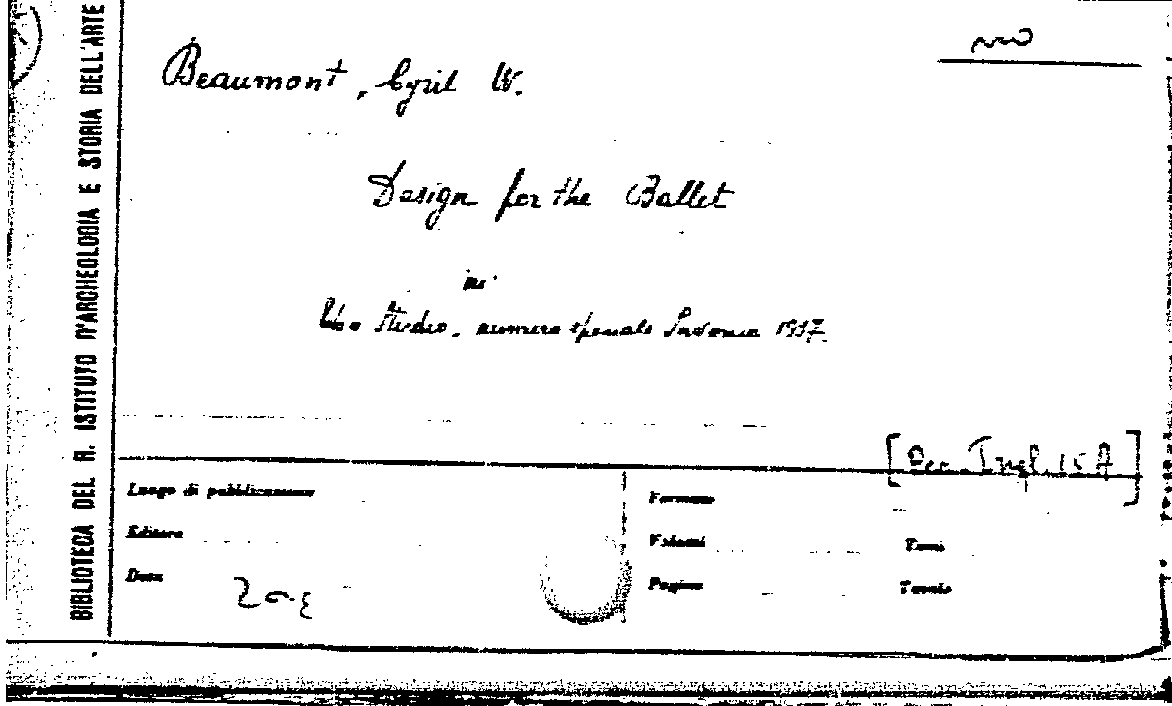 BIBLIOTECA DEL R. ISTITUTO D'ARCHEOLOGIA E STORIA DELL'ARTE
Beaumont, Cyril W.
Design for the Ballet
in
Studio, numero speciale 1937
[Per. Ingl. 15 A]
Luogo di pubblicazione
Editore
Data
Formato
Volumi
Tomi
Pagine
Tavole